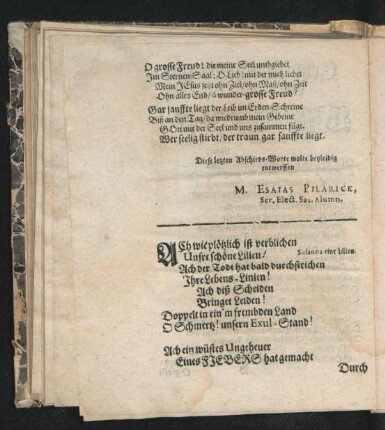 O grosse Freud! die meine Seel umbgiebet
Im Sternen-Saal: O Lieb! mit der mich liebet
Mein JEsus jetzt ohn Ziel/ohn Maß/ohn Zeit
Ohn alles End/ ô wunder-grosse Freud!
Gar sanffte liegt der Leib im Erden-Schreine
Biß an den Tag/da wiedrumb mein Gebeine
GOtt mit der Seel und uns zusammen fügt.
Wer seelig stirbt/der traun gar sanffte liegt.
Diese letzten Abschieds-Worte wolte beyleidig
entwerffen
M. ESAIAS PILARICK,
Ser. Elect. Sax. Alumn.
ACh wie plötzlich ist verblichen
Unsre schöne Lilien! Susanna eine Lilien.
Ach der Todt hat bald durchstrichen
Ihre Lebens-Linien!
Ach diß Scheiden
Bringet Leiden!
Doppelt in ein'm frembden Land
O Schmertz! unsern Exul-Stand!
Ach ein wüstes Ungeheuer
Eines FIEBERS hat gemacht
Durch